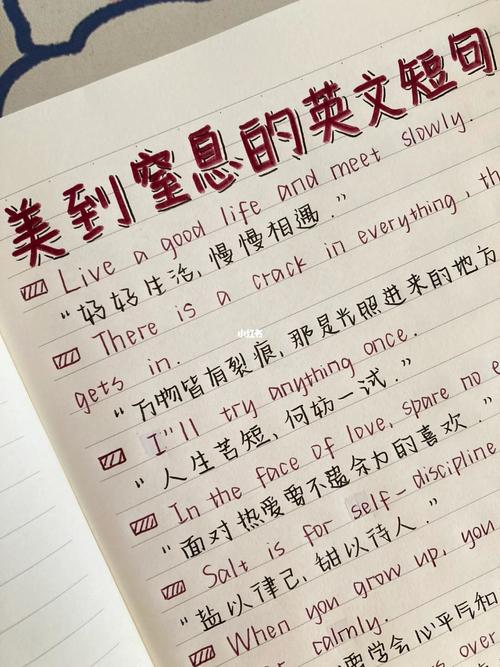 美到窒息的英文短句
Live a good life and meet slowly.
“好好生活,慢慢相遇.”
There is a crack in everything, th
gets in.
“万物皆有裂痕,那是光照进来的地方
I'll try anything once.
“人生苦短,何妨一试.”
In the face of love, spare no e
“面对热爱要不遗余力的喜欢.”
Salt is for self-discipline
“盐以律己,甜以待人.”
When you grow up, you
calmly.
要学会心平气和
over
小红书